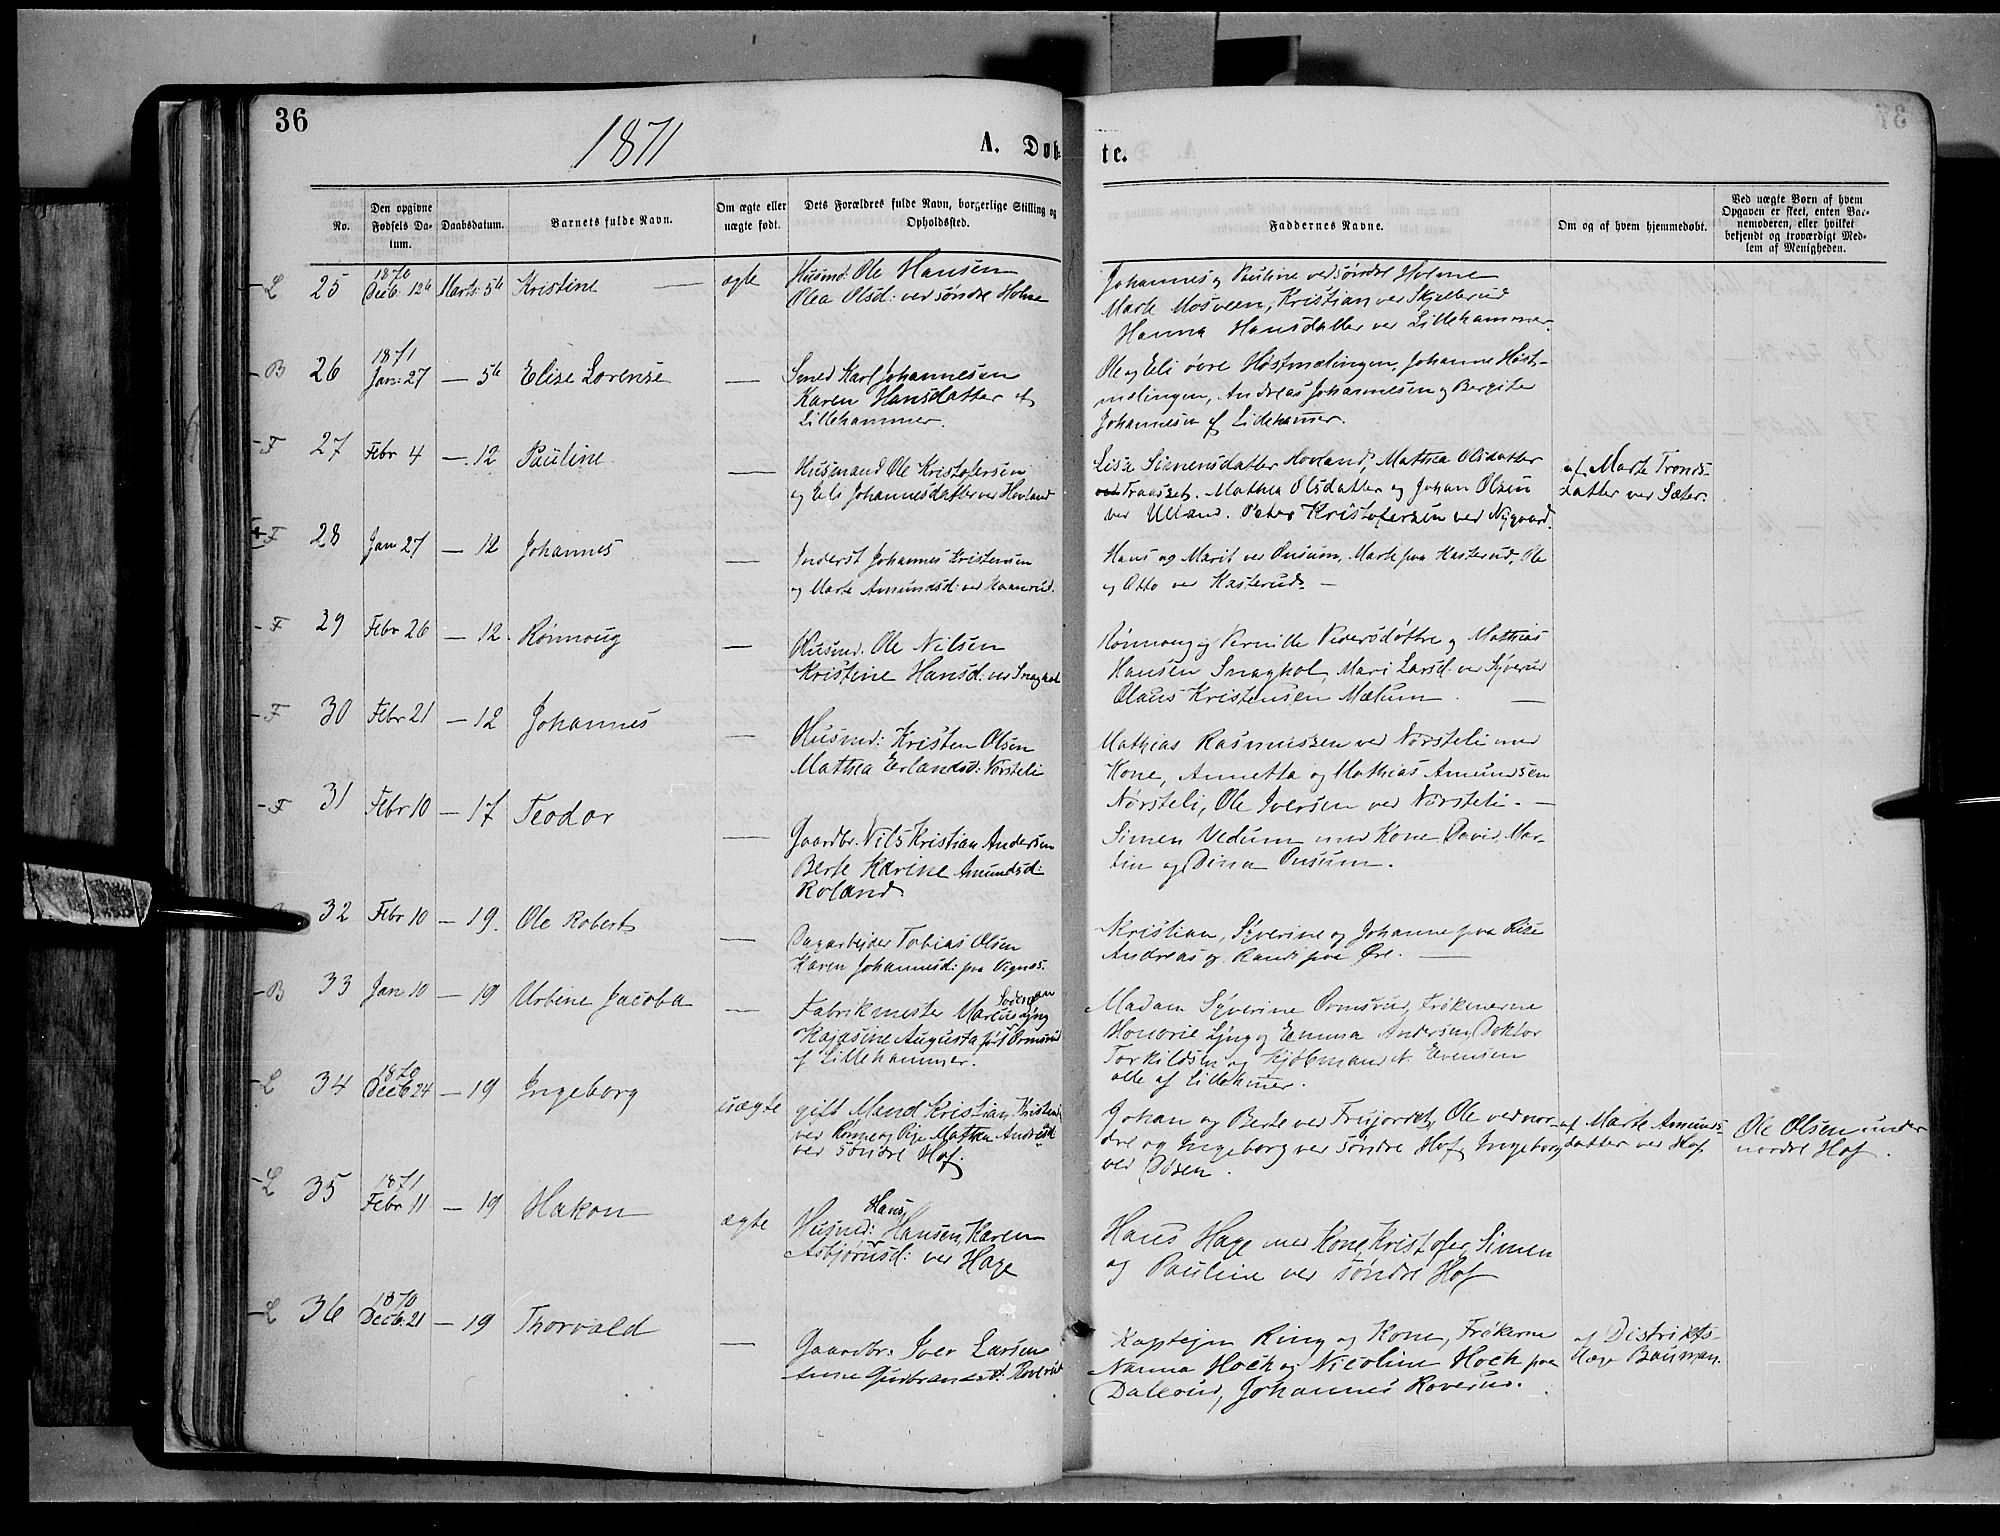 36
1871
A. Døb-
te.
37
No.
Den opgivne Fødsels Datum.
Daabsdatum.
Barnets fulde Navn.
Om ægte eller uægte født.
Dets Forældres fulde Navn, borgerlige Stilling og Opholdssted.
Faddernes Navne.
Om og af hvem hjemmedøbt.
Ved uægte Børn af hvem Opgaven er skeet, enten Barnemoderen, eller hvilket bekjendt og troværdigt Medlem af Menigheden.
L 25 1870 Decb: 12te Marts 5te Kristine ægte
Husmd: Ole Hansen
Olea Olsd: ved søndre Holme
Johannes og Pauline ved søndre Holme
Marte Mosveen, Kristian ved Skjellerud
Hanna Hansdatter ved Lillehammer.
B 26 1871 Jan: 27 — 5te Elise Lorense —
Smed Karl Johannesen
Karen Hansdatter af
Lillehammer.
Ole og Eli øvre Høstmælingen, Johanne Høst-
mælingen, Andreas Johannesen og Bergite
Johannesen af Lillehamer.
F 27 Febr 4 — 12 Pauline —
Husmand Ole Kristofersen
og Eli Johannesdatter ved Hovland
Lisa Simensdatter Hovland, Mathea Olsdatter
Traaset. Mathea Olsdatter og Johan Olsen
ved Ulland. Peter Kristofersen ved Nygaard.
af Marte Tronds-
datter ved Sæter.
F 28 Jan 27 — 12 Johannes —
Inderst Johannes Kristensen
og Marte Amundsd: ved
Hans og Marit ved Onsum, Marte paa Kasterud, Ole
og Otto ved Kasterud. —
F 29 Febr 26 — 12 Rønnoug —
Husmd. Ole Nilsen
Kristine Hansd: ved Snaghol
Rønnoug og Pernille Pedersdøttre og Mathias
Hansen Snaghol, Mari Larsd: ved Syverud
Olaus Kristensen Mælum. —
F 30 Febr 21 — 12 Johannes —
Husmd: Kristen Olsen
Mathea Erlandsd: Nørsteli
Mathias Rasmussen ved Nørsteli med
Kone, Annetta og Mathias Amundsen
Nørsteli, Ole Iversen ved Nørsteli. —
F 31 Febr 10 — 17 Teodor —
Gaardbr. Nils Kristian Andersen
Berte Karine Amundsd:
Roland
Simen Vedum med Kone David, Mar-
tin og Dina Onsum.
32 Febr 10 — 19. Ole Robert —
Dagarbejder Tobias Olsen
Karen Johannesd: paa Vignes.
Kristian, Syverine og Johanne paa Rise
Andreas og Randi paa Øre. —
B 33 Jan 10 — 19 Urbine Jacoba —
Fabrikmester Marcus Lyng
Kajasine Augusta født Ormsrud
af Lillehammer.
Madam Syverine Ormsrud, Frøknerne
Honorie Lyng og Emma Andersen, Doktor
Torkildsen og Kjøbmand N. Evensen
alle af Lillehmer.
L 34 1870 Decb 24 — 19 Ingeborg uægte
gift Mand Kristian Kristens
ved Rønne og Pige Mathea Andersd
ved søndre Hof.
Johan og Berte ved Frujordet, Ole ved nor-
dre og Ingeborg ved søndre Hof, Ingeborg
ved Døsen.
af Marte Amunds-
datter ved Hof.
Ole Olsen under
nordre Hof.
L 35 1871 Febr 11 — 19 Hakon ægte
Husmd: Hans Hansen, Karen
Asbjørnsd: ved Hage
Hans Hage med Kone, Kristofer, Simen
og Pauline ved søndre Hof
L 36 1870 Decb. 21 — 19 Thorvald —
Gaardbr: Iver Larsen
Anne Gudbrandsd: Roverud
Kaptejn Ring og Kone, Frøknerne
Nanna Hoch og Nicoline Hoch paa
Dalerud, Johannes Roverud.
af Distrikts-
læge Bauman.